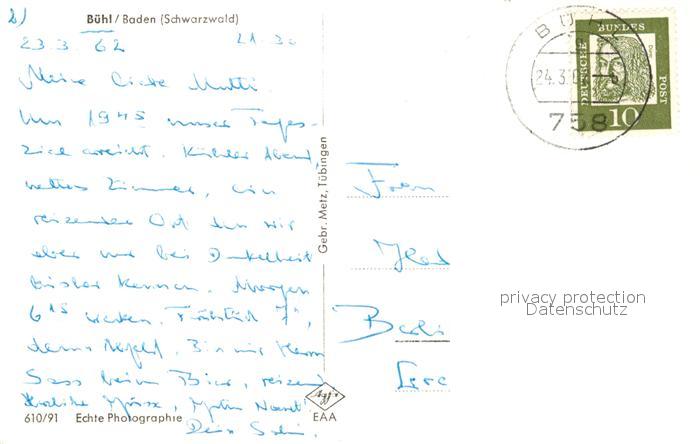 2)
Bühl / Baden (Schwarzwald)
23.3.62 21.30
Meine Liebe Mutti.
Um 19 45 unser Tages-
ziel erreicht. Kühler Abend,
nettes Zimmer, ein
reizender Ort den wir
aber nur bei Dunkelheit
bisher kennen. Morgen
6 15 wecken. Frühstück 7 ,
dann Abfahrt. Bin mit Herrn
Sass beim Bier, reizend
Herzliche Grüsse,
610/91 Echte Photographie
EAA
Dein
Gebr. Metz, Tübingen
BÜHL
24.3.
758
DEUTSCHE
BUNDES
POST
10
Frau
Berli
privacy protection
Datenschutz